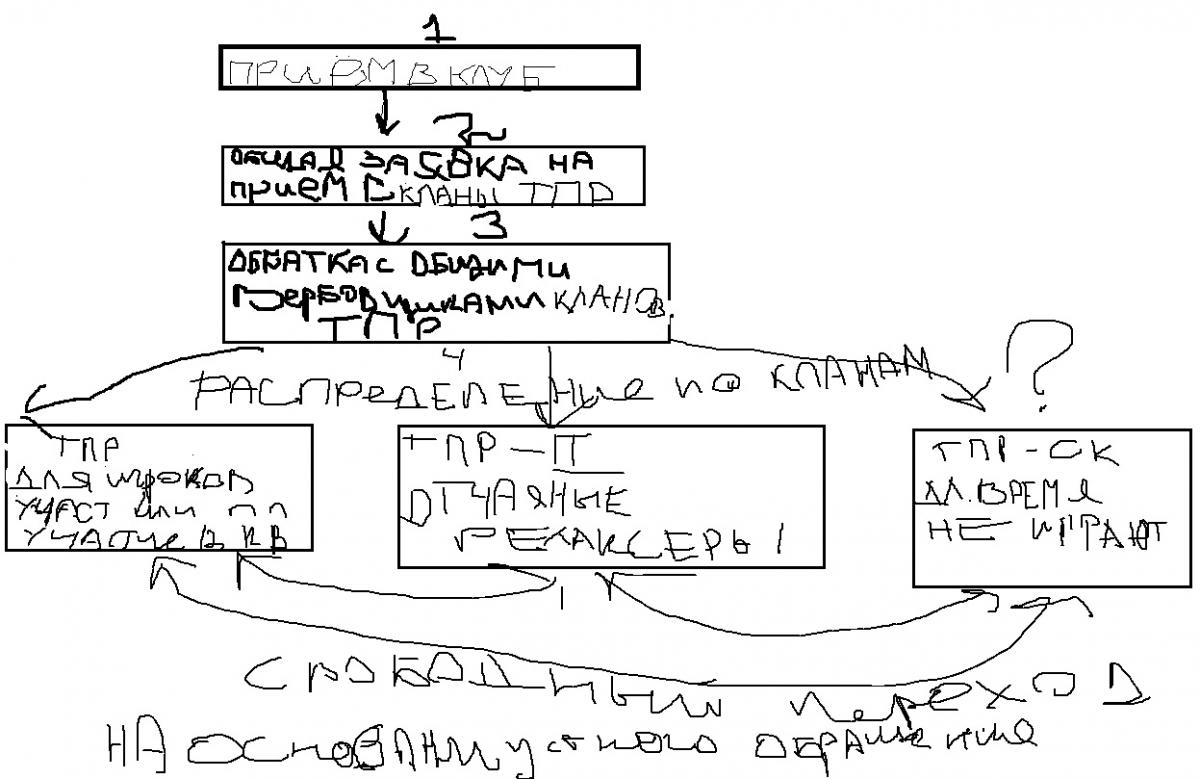 1
ПРИЁМ В КЛУБ
2
ОБЩАЯ ЗАЯВКА НА
ПРИЕМ В КЛАНЫ ТПР
3
ОБРАТКА С ОБЩИМИ
ВЕРБОВЩИКАМИ КЛАНОВ
ТПР
4
?
РАСПРЕДЕЛЕНИЕ ПО КЛАНАМ
ТПР
ДЛЯ ИГРОКОВ
УЧАСТ ИЛИ ПЛ
УЧАСТИЕ В КВ
ТПР-П
ОТЧАЯНЫЕ
РЕЛАКСЕРЫ
ТПР-СК
ДЛ. ВРЕМЯ
НЕ ИГРАЮТ
СВОБОДНЫЙ ПЕРЕХОД
НА ОСНОВАНИИ УСТНОГО ОБРАЩЕНИЕ